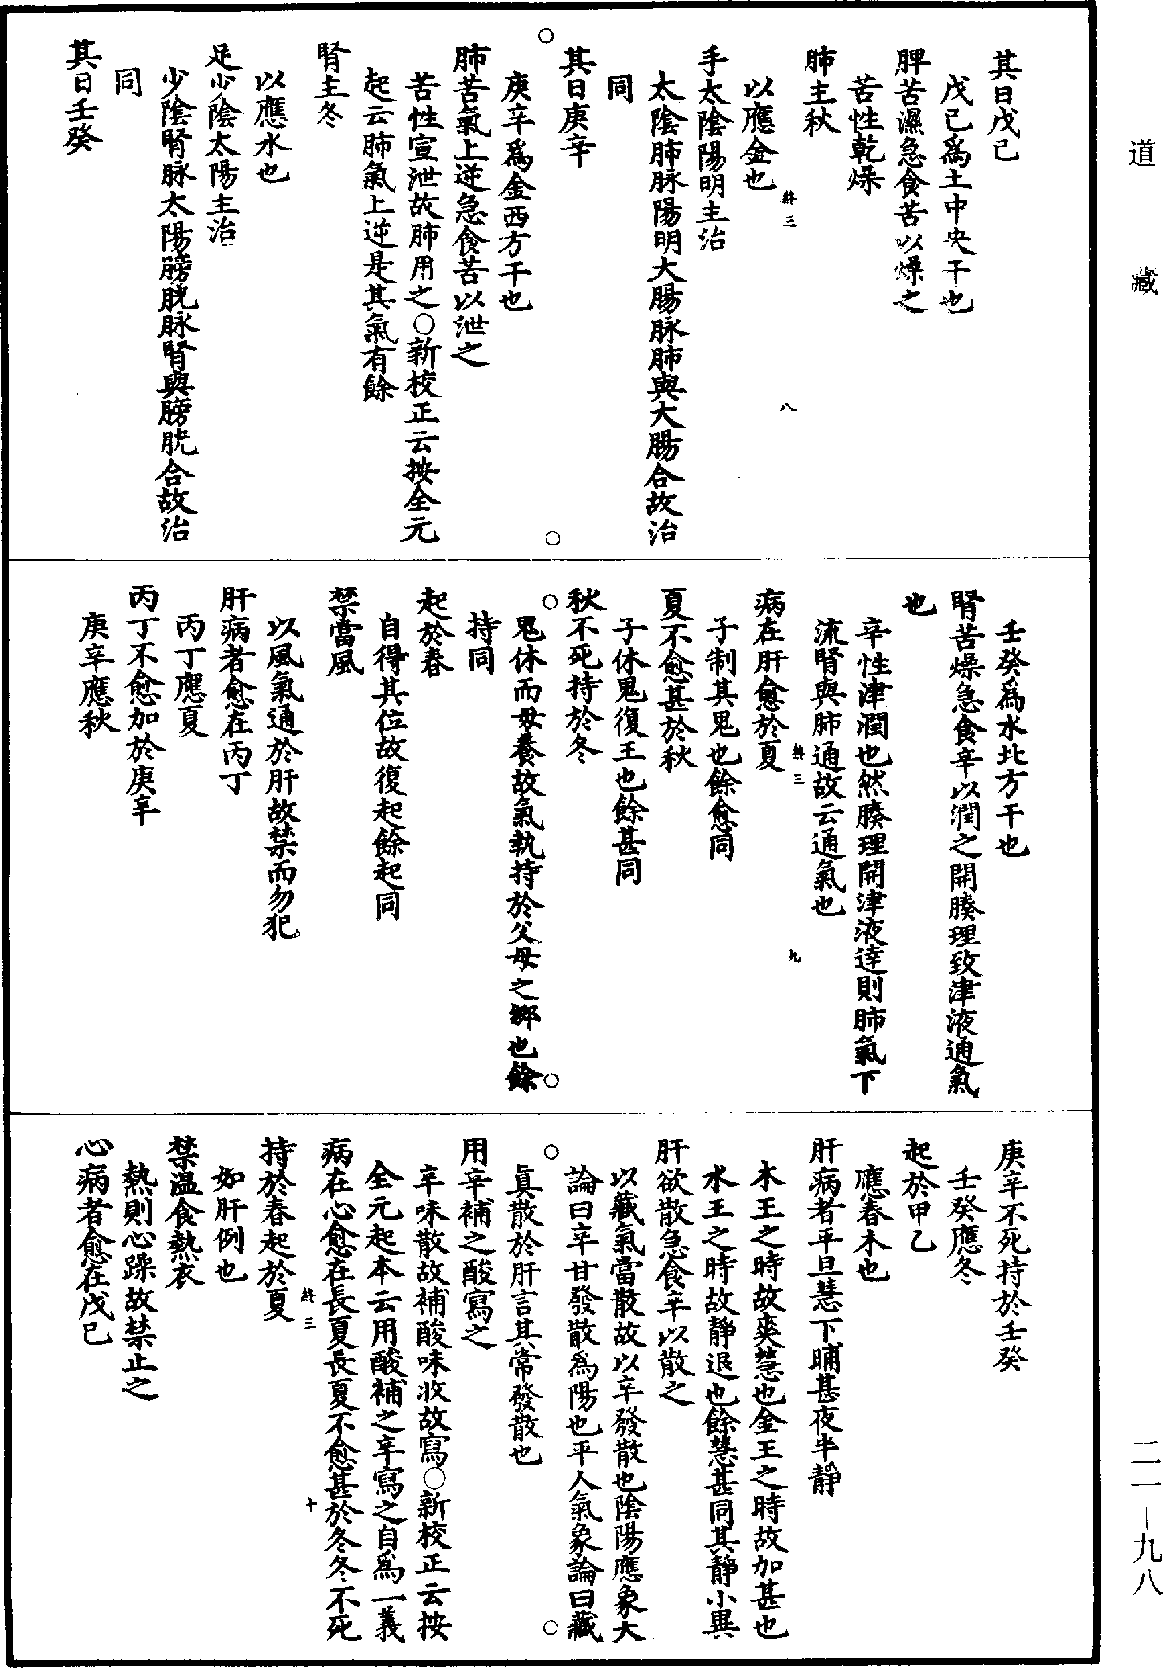 道藏
其日戊己
戊己爲土中央干也
脾苦濕急食苦以燥之
苦性乾燥
肺主秋
以應金也
絳三
八
手太陰陽明主治
太陰肺脉陽明大腸脉肺與大腸合故治
同
其日庚辛
庚辛爲金西方干也
肺苦氣上逆急食苦以泄之
苦性宣泄故肺用之○新校正云按全元
起云肺氣上逆是其氣有餘
腎主冬
以應水也
足少陰太陽主治
少陰腎脉太陽膀胱脉腎與膀胱合故治
同
其日壬癸
壬癸爲水北方干也
腎苦燥急食辛以潤之開腠理致津液通氣
也
辛性津潤也然腠理開津液達則肺氣下
流腎與肺通故云通氣也
絳三
九
病在肝愈於夏
子制其鬼也餘愈同
夏不愈甚於秋
子休鬼復王也餘甚同
秋不死持於冬
鬼休而母養故氣執持於父母之鄉也餘
持同
起於春
自得其位故復起餘起同
禁當風
以風氣通於肝故禁而勿犯
肝病者愈在丙丁
丙丁應夏
丙丁不愈加於庚辛
庚辛應秋
庚辛不死持於壬癸
壬癸應冬
起於甲乙
應春木也
肝病者平旦慧下晡甚夜半靜
木王之時故爽慧也金王之時故加甚也
水王之時故靜退也餘慧甚同其靜小異
肝欲散急食辛以散之
以藏氣當散故以辛發散也陰陽應象大
論曰辛甘發散爲陽也平人氣象論曰藏
眞散於肝言其常發散也
用辛補之酸寫之
辛味散故補酸味收故寫○新校正云按
全元起本云用酸補之辛寫之自爲一義
病在心愈在長夏長夏不愈甚於冬冬不死
絳三
十
持於春起於夏
如肝例也
禁溫食熱衣
熱則心躁故禁止之
心病者愈在戊己
二一—九八